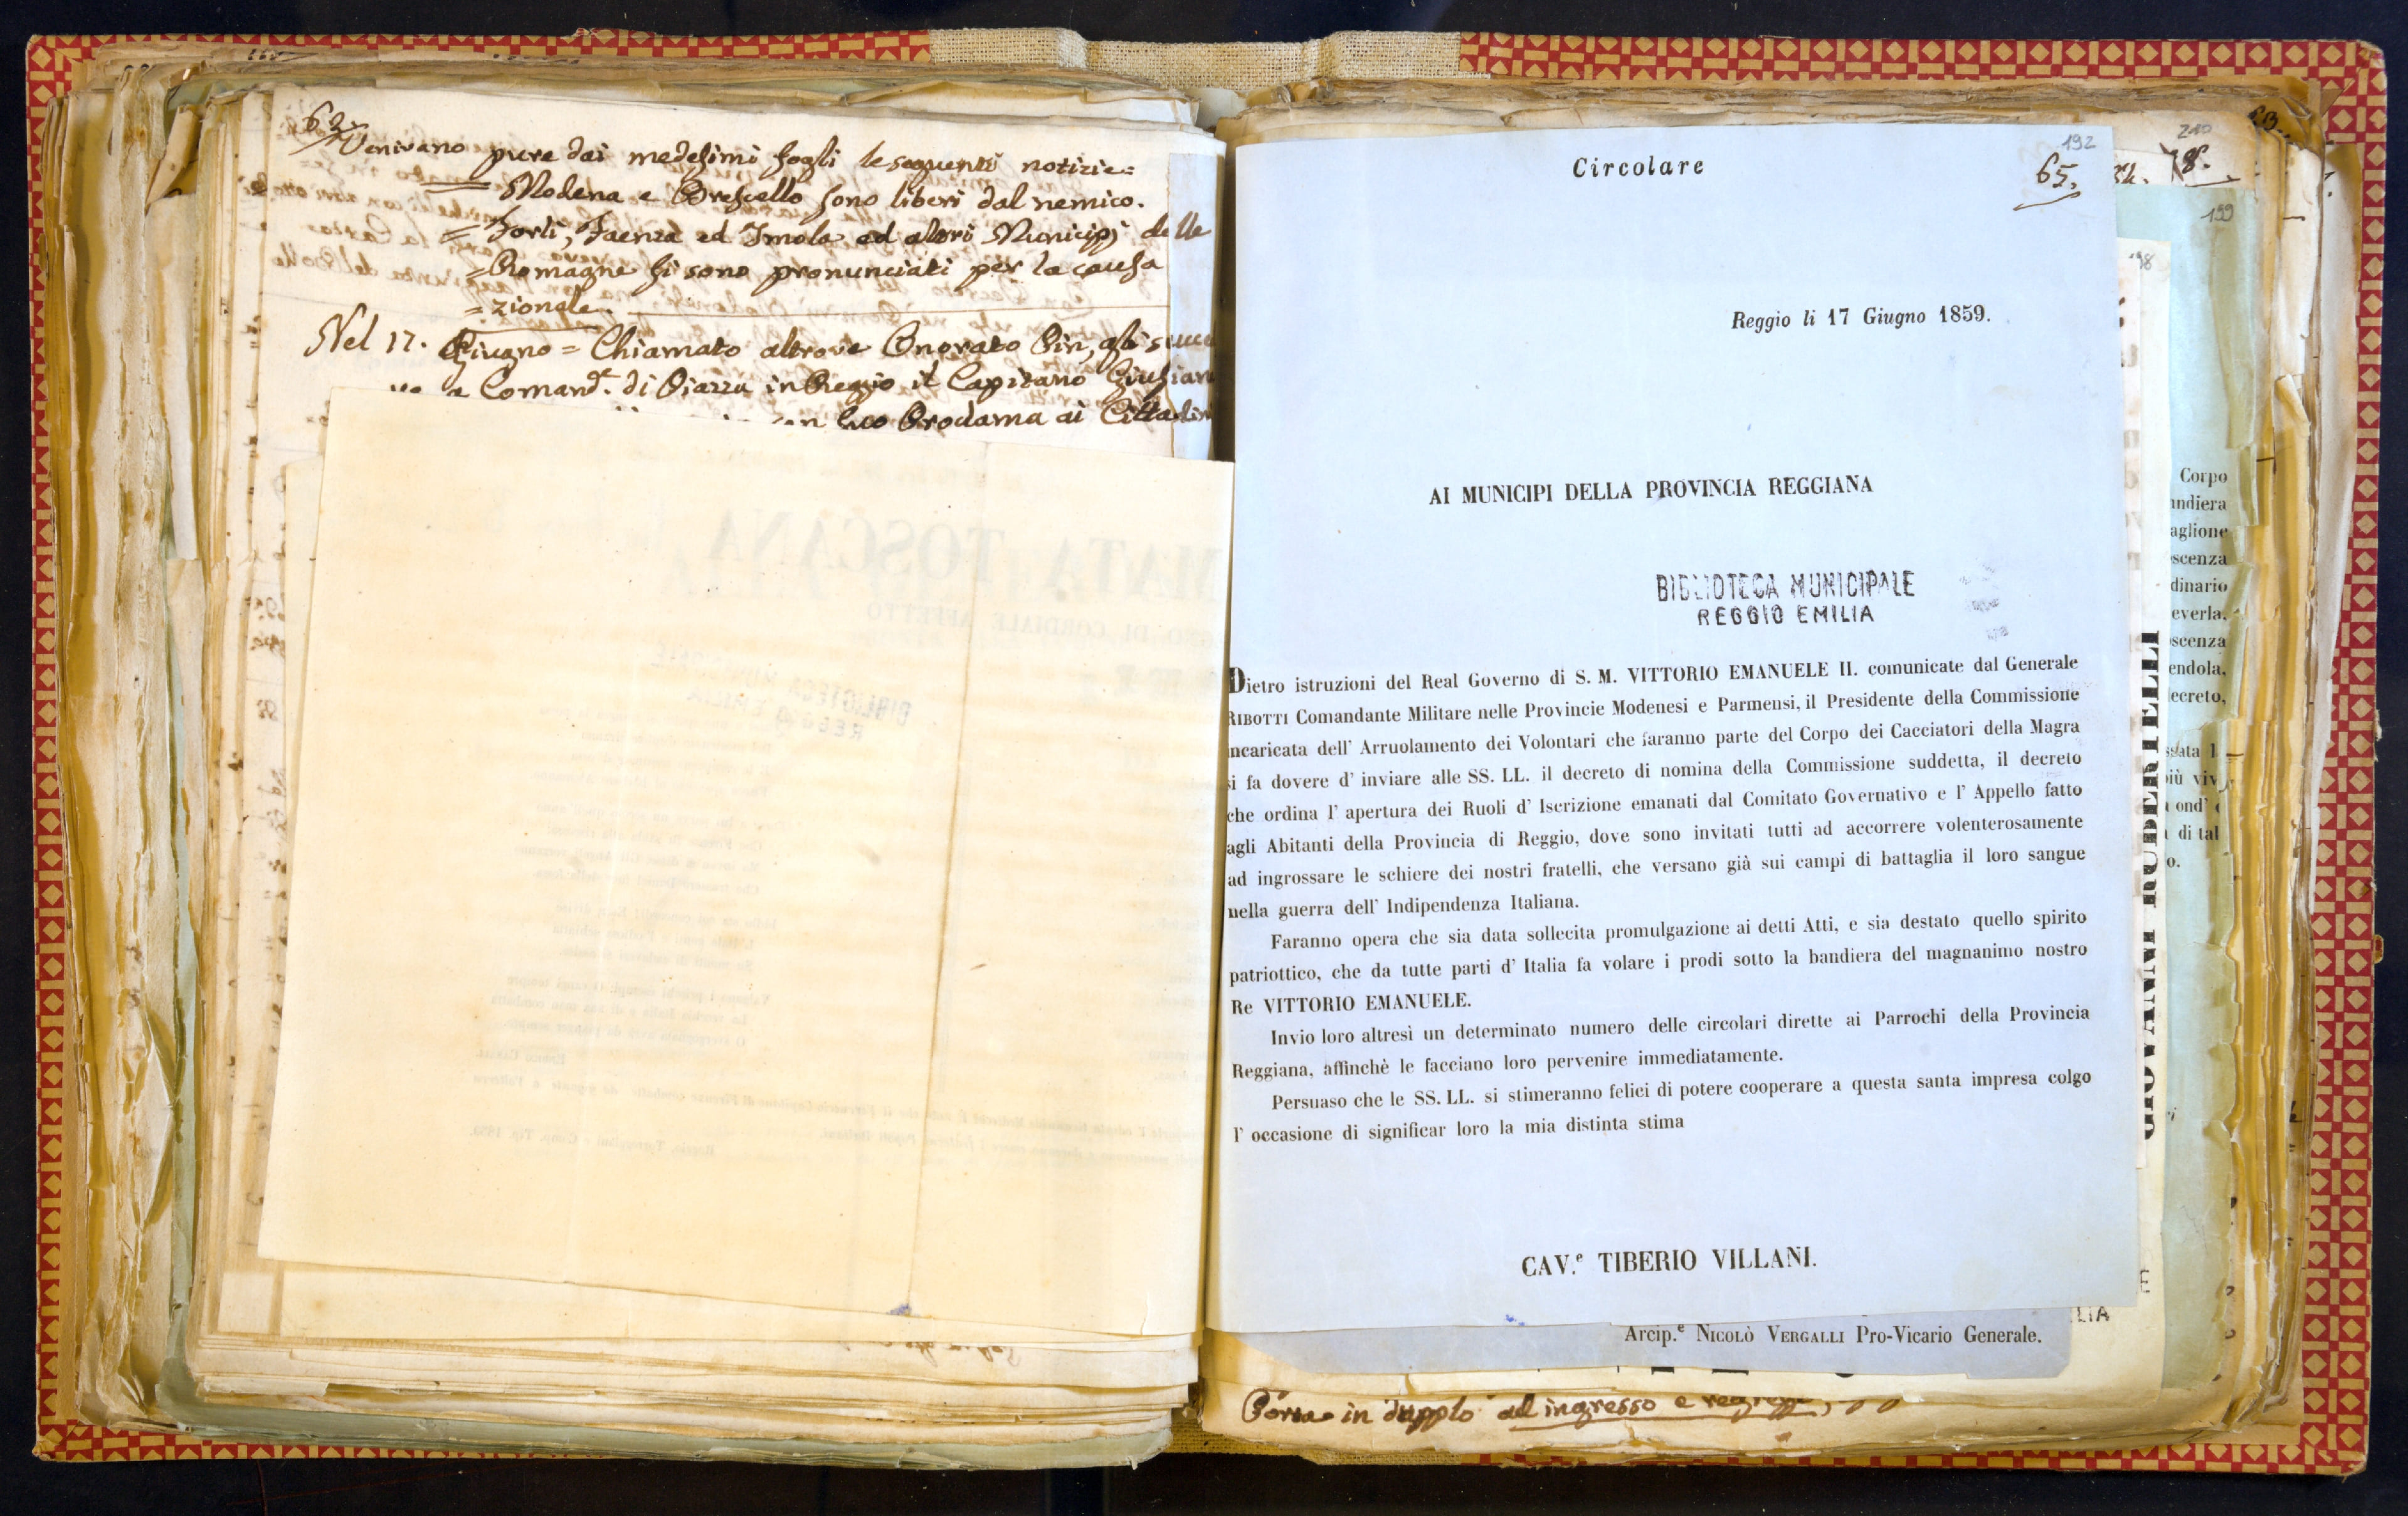 62
Venivano pure dai medesimi fogli le seguenti notizie=
= Modena e Brescello sono liberi dal nemico.
= Forlì, Faenza ed Imola ed altri Municipj delle
= Romagne si sono pronunciati per la causa
= zionale.
Nel 17. Giugno = Chiamato altrove Onorato Pin, gli succe
a Comand.e di Piazza in Reggio il Capitano Giusian
suo Proclama ai Cittadini
MATA TOSCANA
DI CORDIALE AFFETTO
BIBLIOTECA MUNICIPALE
REGGIO EMILIA
192
Circolare
65.
Reggio li 17 Giugno 1859.
AI MUNICIPI DELLA PROVINCIA REGGIANA
BIBLIOTECA MUNICIPALE
REGGIO EMILIA
Dietro istruzioni del Real Governo di S. M. VITTORIO EMANUELE II. comunicate dal Generale
RIBOTTI Comandante Militare nelle Provincie Modenesi e Parmensi, il Presidente della Commissione
incaricata dell' Arruolamento dei Volontari che faranno parte del Corpo dei Cacciatori della Magra
si fa dovere d' inviare alle SS. LL. il decreto di nomina della Commissione suddetta, il decreto
che ordina l' apertura dei Ruoli d' Iscrizione emanati dal Comitato Governativo e l' Appello fatto
agli Abitanti della Provincia di Reggio, dove sono invitati tutti ad accorrere volenterosamente
ad ingrossare le schiere dei nostri fratelli, che versano già sui campi di battaglia il loro sangue
nella guerra dell' Indipendenza Italiana.
Faranno opera che sia data sollecita promulgazione ai detti Atti, e sia destato quello spirito
patriottico, che da tutte parti d' Italia fa volare i prodi sotto la bandiera del magnanimo nostro
Re VITTORIO EMANUELE.
Invio loro altresì un determinato numero delle circolari dirette ai Parrochi della Provincia
Reggiana, affinchè le facciano loro pervenire immediatamente.
Persuaso che le SS. LL. si stimeranno felici di potere cooperare a questa santa impresa colgo
l' occasione di significar loro la mia distinta stima
CAV.e TIBERIO VILLANI.
Arcip.e NICOLÒ VERGALLI Pro-Vicario Generale.
LIA
in dupplo ad ingresso e
210
8.
199
198
Corpo
andiera
aglione
scenza
dinario
everla,
scenza
endola,
ecreto,
ssata l
più viv
ond'
di tal
o.
GIOVANNI RUBERTELLI